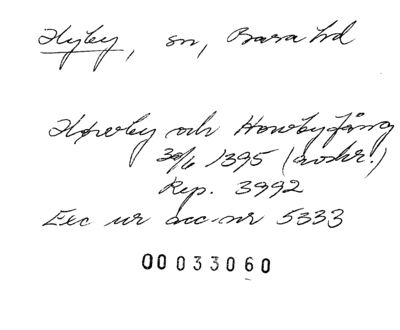 Hyby, sn, Bara hd
Høvby och Howbyfång
30/6 1395 (avskr.)
Rep. 3992
Exc ur acc.nr 5333
00033060